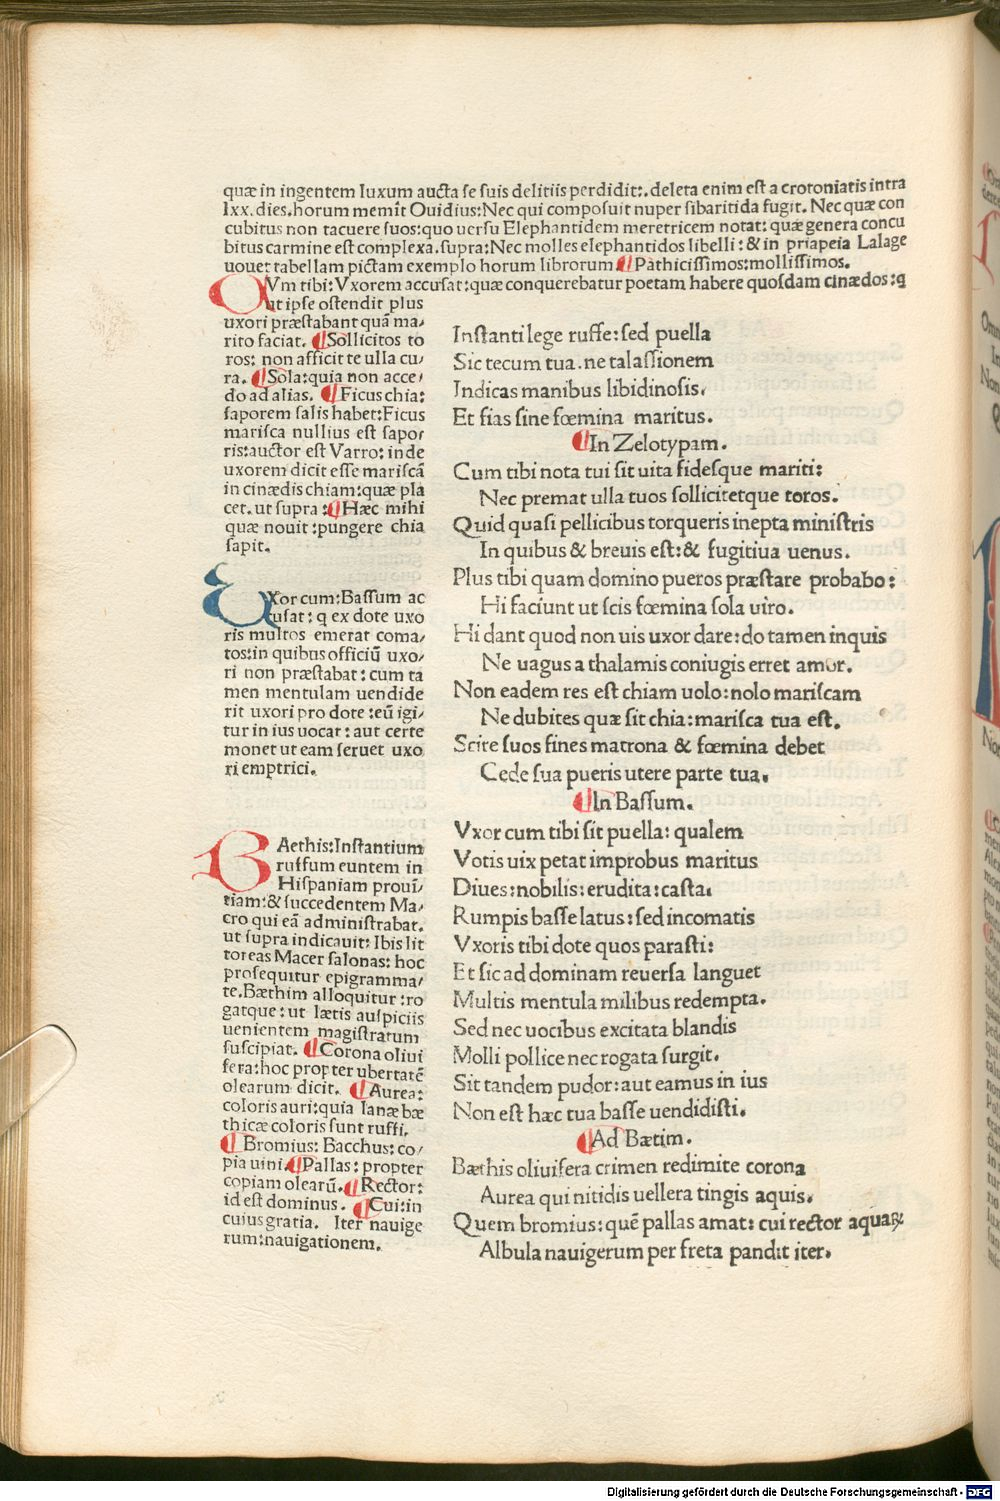 quæ in ingentem luxum aucta se suis delitiis perdidit:. deleta enim est a crotoniatis intra
lxx. dies. horum memīt Ouidius: Nec qui composuit nuper sibaritida fugit. Nec quæ con
cubitus non tacuere suos: quo uersu Elephantidem meretricem notat: quæ genera concu
bitus carmine est complexa. supra: Nec molles elephantidos libelli: & in priapeia Lalage
uouet tabellam pictam exemplo horum librorum ¶ Pathicissimos: mollissimos.
CVm tibi: Vxorem accusat: quæ conquerebatur poetam habere quosdam cinædos: q
ut ipse ostendit plus
uxori præstabant quā ma/
rito faciat. ¶ Sollicitos to
ros: non afficit te ulla cu/
ra. ¶ Sola: quia non acce/
do ad alias. ¶ Ficus chia:
saporem salis habet: Ficus
marisca nullius est sapor
ris: auctor est Varro: inde
uxorem dicit esse mariscā
in cinædis chiam: quæ pla
cet. ut supra: ¶ Hæc mihi
quæ nouit: pungere chia
sapit.
VXor cum: Bassum ac
cusat: q ex dote uxo
ris multos emerat coma/
tos: in quibus officiū uxo/
ri non præstabat: cum ta
men mentulam uendide
rit uxori pro dote: eū igi/
tur in ius uocat: aut certe
monet ut eam seruet uxo
ri emptrici.
BAethis: Instantium
ruffum euntem in
Hispaniam prouī/
tiam: & succedentem Ma/
cro qui eā administrabat.
ut supra indicauit: Ibis lit
toreas Macer salonas: hoc
prosequitur epigramma/
te. Bæthim alloquitur: ro
gatque: ut lætis auspiciis
uenientem magistratum
suscipiat. ¶ Corona oliui
fera: hoc propter ubertatē
olearum dicit. ¶ Aurea:
coloris auri: quia lanæ bæ
thicæ coloris sunt ruffi.
¶ Bromius: Bacchus: co/
pia uini. ¶ Pallas: propter
copiam olearū. ¶ Rector:
id est dominus. ¶ Cui: in
cuius gratia. Iter nauige
rum: nauigationem.
Instanti lege ruffe: sed puella
Sic tecum tua. ne talassionem
Indicas manibus libidinosis.
Et fias sine fœmina maritus.
¶ In Zelotypam.
Cum tibi nota tui sit uita fidesque mariti:
Nec premat ulla tuos sollicitetque toros.
Quid quasi pellicibus torqueris inepta ministris
In quibus & breuis est: & fugitiua uenus.
Plus tibi quam domino pueros præstare probabo:
Hi faciunt ut scis fœmina sola uiro.
Hi dant quod non uis uxor dare: do tamen inquis
Ne uagus a thalamis coniugis erret amor.
Non eadem res est chiam uolo: nolo mariscam
Ne dubites quæ sit chia: marisca tua est.
Scire suos fines matrona & fœmina debet
Cede sua pueris utere parte tua.
¶ In Bassum.
Vxor cum tibi sit puella: qualem
Votis uix petat improbus maritus
Diues: nobilis: erudita: casta.
Rumpis basse latus: sed incomatis
Vxoris tibi dote quos parasti:
Et sic ad dominam reuersa languet
Multis mentula milibus redempta.
Sed nec uocibus excitata blandis
Molli pollice nec rogata surgit.
Sit tandem pudor: aut eamus in ius
Non est hæc tua basse uendidisti.
¶ Ad Bætim.
Bæthis oliuifera crimen redimite corona
Aurea qui nitidis uellera tingis aquis.
Quem bromius: quē pallas amat: cui rector aquaꝝ
Albula nauigerum per freta pandit iter.
Digitalisierung gefördert durch die Deutsche Forschungsgemeinschaft - DFG